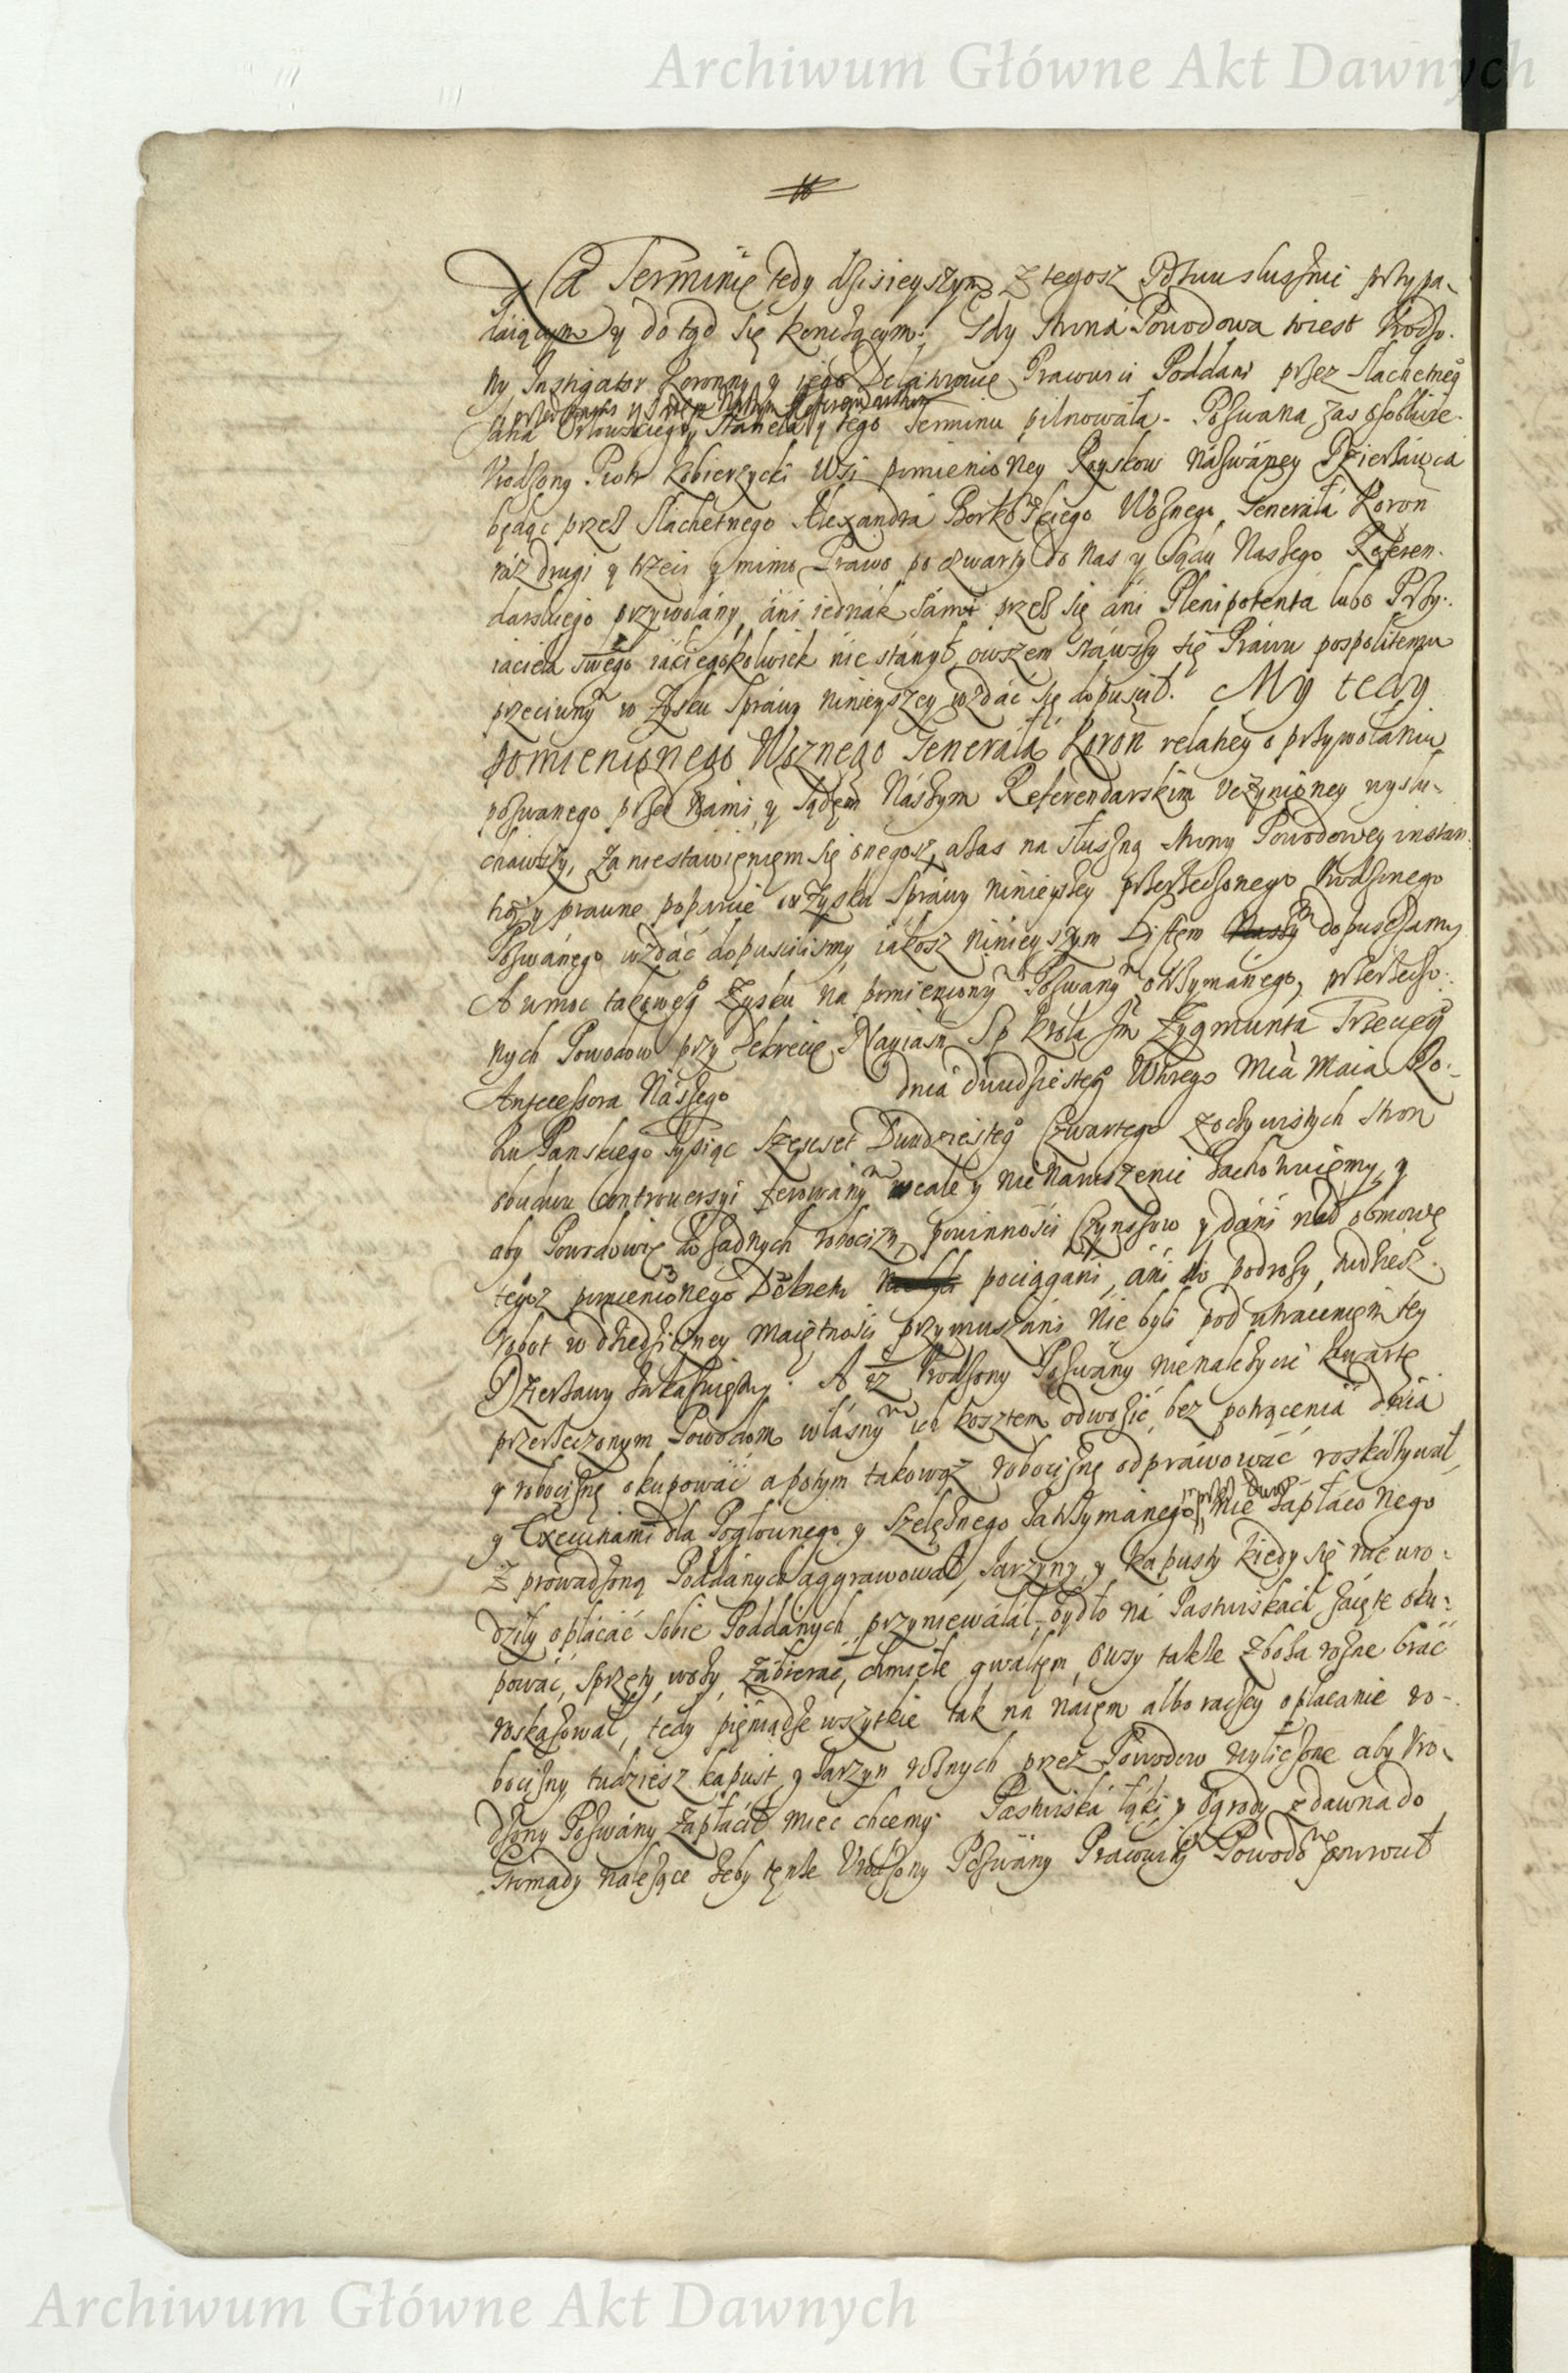 Archiwum Główne Akt Dawnych
Na Terminie tedy dzisieyszym z tegosz Poswu słusznie przypa-
daiącym y do tąd się konczącym: Gdy strona Powodowa to iest Vrodzo-
ny Instigator Koronny y iego Delatorowie Pracowici Poddani przez Slachetneg
przed Nami y Sądem Naszym Referendarskim
Jana Orłowskiego, Stanęła y tego Terminu pilnowała. Poswana zas osobliwie
Vrodzony Piotr Kobierzycki Wsi pomienioney Rzyskow názwáney Dzierżáwcá
będąc przez Slachetnego Alexandra Borkowskiego Woznego Generała Koron
ráz drugi y trzeci y mimo Prawo po czwarty do Nas y Sądu Naszego Referen-
darskiego przywołány, áni iednák sám przez się áni Plenipotenta lubo Przy-
iaciela swego iákiegokolwiek nie stánął, owszem stáwszy się Práwu pospolitemu
przeciwny w Zysku Spráwy ninieyszey wzdáć się dopuścił. My tedy
pomienionego Woznego Generała Koron relatiey o przywołaniu
pozwanego przed Nami y Sądem Nászym Referendarskim vczynioney wysłu-
chawszy, za niestawieniem się onegosz, a zas na słuszną strony Powodowey instan-
tią y prawne poparcie w Zysku Spráwy ninieyszey przerzeczonego Vrodzonego
Poswánego wzdáć dopuscilismy iákosz ninieyszym Listem dopuszczamy
A w moc takoweg Zysku na pomieniony Poswany otrzymánego, przerzeczo-
nych Powodow przy Dekrecie Nayiasn. Sp Krola Jm Zygmunta Trzecieg
Antecessora Nászego dnia dwudziesteg Wtorego Mcá Maia Ro-
ku Panskiego Tysiąc Szescset Dwudziesteg Czwartego z oczywistych stron
obudwu Controwersyi ferowány wcale y nienaruszenie zachowuiemy, y
aby Powodowie do żadnych robocizn, powinności Czynszow y dáni nád obmowę
tegoz pomienionego Dekretu pociągani, áni do podroży, tudziesz
robot w dziedziczney maiętnosci przymuszáni nie byli pod utraceniem tey
Dzierżawy zakazuiemy. A iż Vrodzony Poswány nienależycie kwartę
przerzeczonym Powodom własny ich kosztem odwozić, bez potrącenia dniá
y robociznę okupowáć a potym takowąz robociznę odpráwować roskázywał,
y Exekucyami dla Pogłownego y Szelężnego zatrzymánego przez Dwor, nie zapłaconego
z prowadzoną Poddánych aggrawował, Jarzyny y kapusty kiedy się nie uro-
dziły opłácáć sobie Poddánych przyniewáláł, bydło ná Pastwiskach zaięte oku-
pować, sprzęty, wozy, zábierać, chmiele gwałtem, owsy takze zboża rożne brać
roskazował, tedy pieniądze wszytkie tak na naięm albo raczey opłacanie ro-
bocizny, tudziesz kapust y Jarzyn rożnych przez Powodow wyliczone aby Vro-
dzony Poswány zapłácił mieć chcemy. Pastwiská łąki y ogrody zdawna do
Gromady należące żeby tenże Vrodzony Poswány Pracowity Powodo powrocił
Archiwum Główne Akt Dawnych